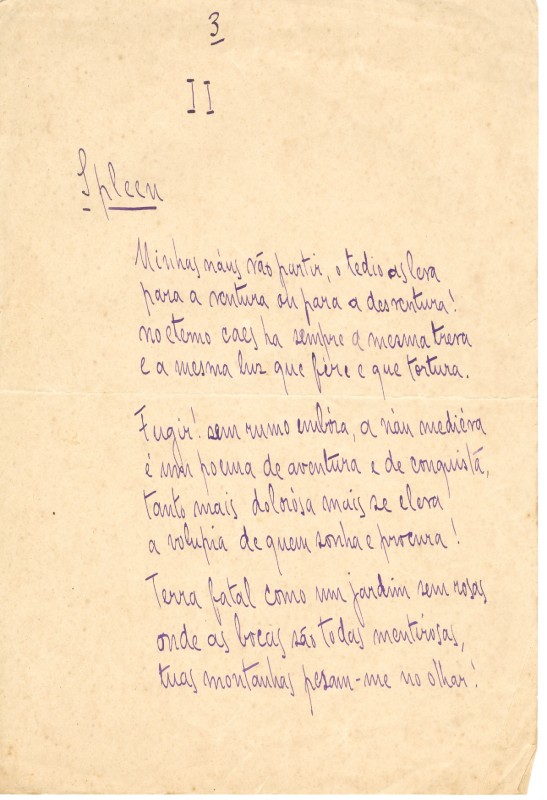 3
II
Spleen
Minhas náus vão partir, o tedio as leva
para a ventura ou para a desventura!
no eterno caes ha sempre a mesma treva
e a mesma luz que fére e que tortura.
Fugir! sem rumo embóra, a náu mediéva
é um poema de aventura e de conquista,
tanto mais dolorósa mais se eleva
a volupia de quem sonha e procura!
Terra fatal como um jardim sem rosas
onde as bocas são todas mentirósas,
tuas montanhas pesam-me no olhar!